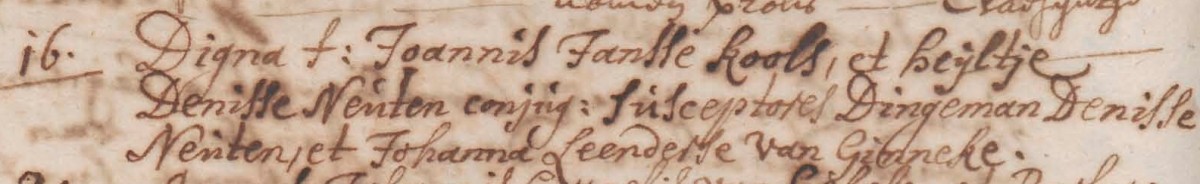 nomen prolis
16. Digna f: Joannis Jansse kools, et heyltje
Denisse Neuten conjug: susceptores Dingeman Denisse
Neuten, et Johanna Leendertse van Ginneke.